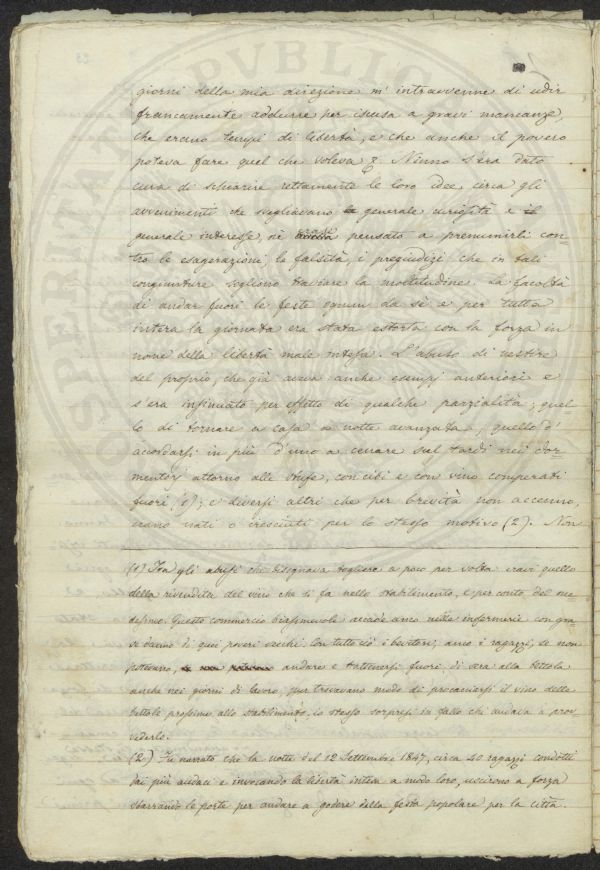 giorni della mia direzione m' intravvenne di udir
francamente addurre per iscusa a gravi mancanze,
che erano tempi di libertà, e che anche il povero
poteva fare quel che voleva. Ninno s'era dato
cura di schiarire rettamente le loro idee, circa gli
avvenimenti che svegliavano la generale curiosità e il
generale interesse, nè pensato a premunirli con-
tro le esagerazioni, le falsità, i pregiudizi che in tali
congiunture sogliono traviare la moltitudine. La facoltà
di andar fuori le feste ognun da sè e per tutta
intera la giornata era stata estorta con la forza in
nome della libertà male intesa. L'abuso di vestire
del proprio, che già aveva anche esempj anteriori e
s'era insinuato per effetto di qualche parzialità; quel
lo di tornare a casa a notte avanzata; quello d'
accordarsi in più d'uno a cenare sul tardi nei dor-
mentorj attorno alle stufe, con cibi e con vino comperati
fuori (1); e diversi altri che per brevità non accenno,
erano nati o cresciuti per lo stesso motivo (2). Non
(1) Fra gli abusi che disegnava togliere a poco per volta eravi quello
della rivendita del vino che si fa nello stabilimento, e per conto del me
desimo. Questo commercio biasimevole accade anco nelle infermerie con gra
ve danno di quei poveri vecchi. Con tutto ciò i bevitori, anco i ragazzi, se non
potevano, andare e trattenersi fuori di sera alla bettola
anche nei giorni di lavoro, pur trovavano modo di procacciarsi il vino delle
bettole prossime allo stabilimento. Io stesso sorpresi in fallo chi andava a prov
vederlo.
(2) Fu narrato che la notte del 12 Settembre 1847, circa 40 ragazzi condotti
dai più audaci e invocando la libertà intesa a modo loro, uscirono a forza
sbarrando le porte per andare a godere della festa popolare per la città.